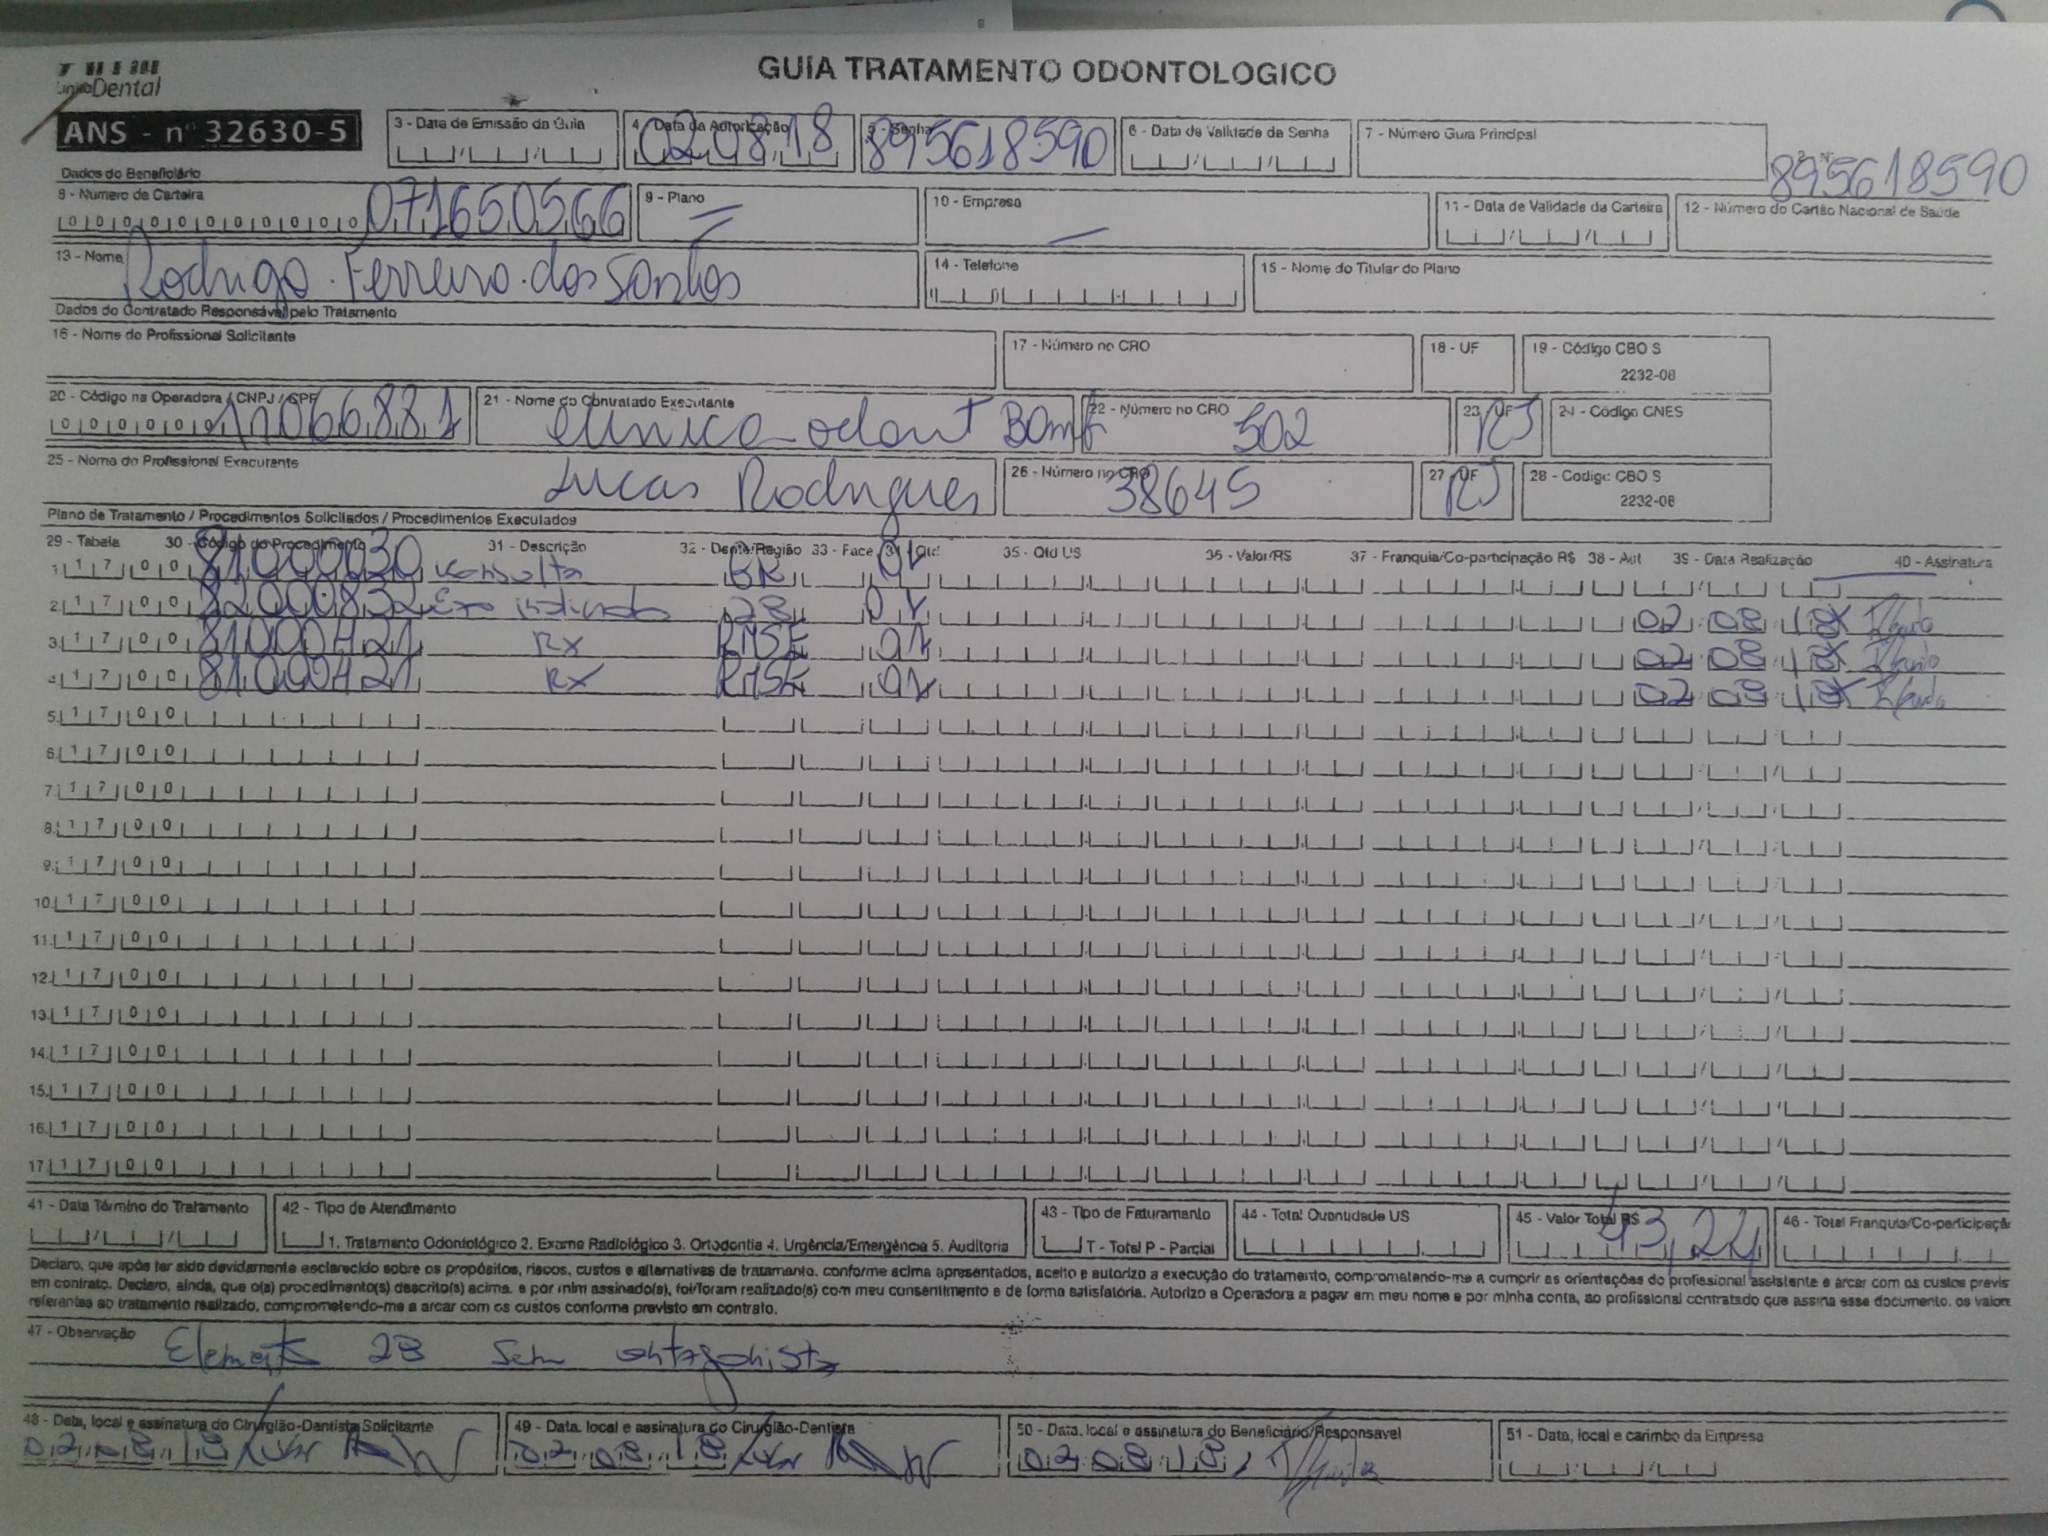 GUIA TRATAMENTO ODONTOLOGICO
Dental
8956185590
ANS - nº 32630-5
3 - Data de Emissão da Guia
4 - Data da Autorização
5 - Senha
8956185590
6 - Data de Validade da Senha
7 - Número Guia Principal
Dados do Beneficiário
8 - Número de Carteira
071650566
9 - Plano
10 - Empresa
11 - Data de Validade da Carteira
12 - Número do Cartão Nacional de Saúde
13 - Nome
Rodrigo Ferreira dos Santos
14 - Telefone
15 - Nome do Titular do Plano
Dados do Contratado Responsável pelo Tratamento
16 - Nome do Profissional Solicitante
17 - Número no CRO
18 - UF
19 - Código CBO S
2232-08
20 - Código na Operadora / CNPJ / CPF
21 - Nome do Contratado Executante
22 - Número no CRO
502
23 - UF
RJ
24 - Código CNES
25 - Nome do Profissional Executante
Lucas Rodrigues
26 - Número no CRO
38645
27 - UF
RJ
28 - Codigo CBO S
2232-08
Plano de Tratamento / Procedimentos Solicitados / Procedimentos Executados
29 - Tabela 30 - Código do Procedimento 31 - Descrição 32 - Dente/Região 33 - Face 34 - Qtd 35 - Qtd US 36 - Valor/R$ 37 - Franquia/Co-participação R$ 38 - Aut 39 - Data Realização 40 - Assinatura
1. 17 00 81000030 Consulta
2. 17 00 82000832 28 02 08 18
3. 17 00 81000421 RX RMSE 01 02 08 18
4. 17 00 81000421 RX RMSE 01 02 08 18
5. 17 00
6. 17 00
7. 17 00
8. 17 00
9. 17 00
10. 17 00
11. 17 00
12. 17 00
13. 17 00
14. 17 00
15. 17 00
16. 17 00
17. 17 00
41 - Data Término do Tratamento
42 - Tipo de Atendimento
1. Tratamento Odontológico 2. Exame Radiológico 3. Ortodontia 4. Urgência/Emergência 5. Auditoria
43 - Tipo de Faturamento
T - Total P - Parcial
44 - Total Quantidade US
45 - Valor Total R$
46 - Total Franquia/Co-participação
Declaro, que após ter sido devidamente esclarecido sobre os propósitos, riscos, custos e alternativas de tratamento, conforme acima apresentados, aceito e autorizo a execução do tratamento, comprometendo-me a cumprir as orientações do profissional assistente e arcar com os custos previs
em contrato. Declaro, ainda, que o(s) procedimento(s) descrito(s) acima, e por mim assinado(s), foi/foram realizado(s) com meu consentimento e de forma satisfatória. Autorizo a Operadora a pagar em meu nome e por minha conta, ao profissional contratado que assina esse documento, os valore
referentes ao tratamento realizado, comprometendo-me a arcar com os custos conforme previsto em contrato.
47 - Observação
Elemento 28 sem antagonista
48 - Data, local e assinatura do Cirurgião-Dentista Solicitante
02 08 18
49 - Data, local e assinatura do Cirurgião-Dentista
02 08 18
50 - Data, local e assinatura do Beneficiário/Responsável
02 08 18
51 - Data, local e carimbo da Empresa